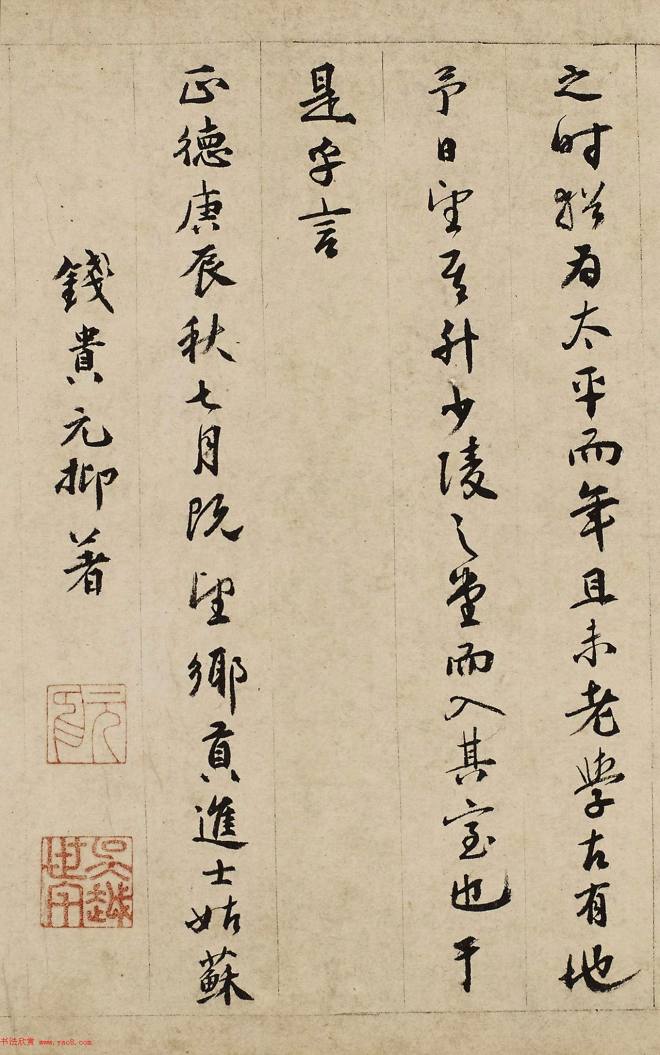 之时犹为太平而年且未老學古有地
予日望君升少陵之堂而入其室也于
是乎言
正德庚辰秋七月既望鄉貢進士姑蘇
錢貴元抑著
元抑
吳越世家
书法欣赏 www.yac8.com